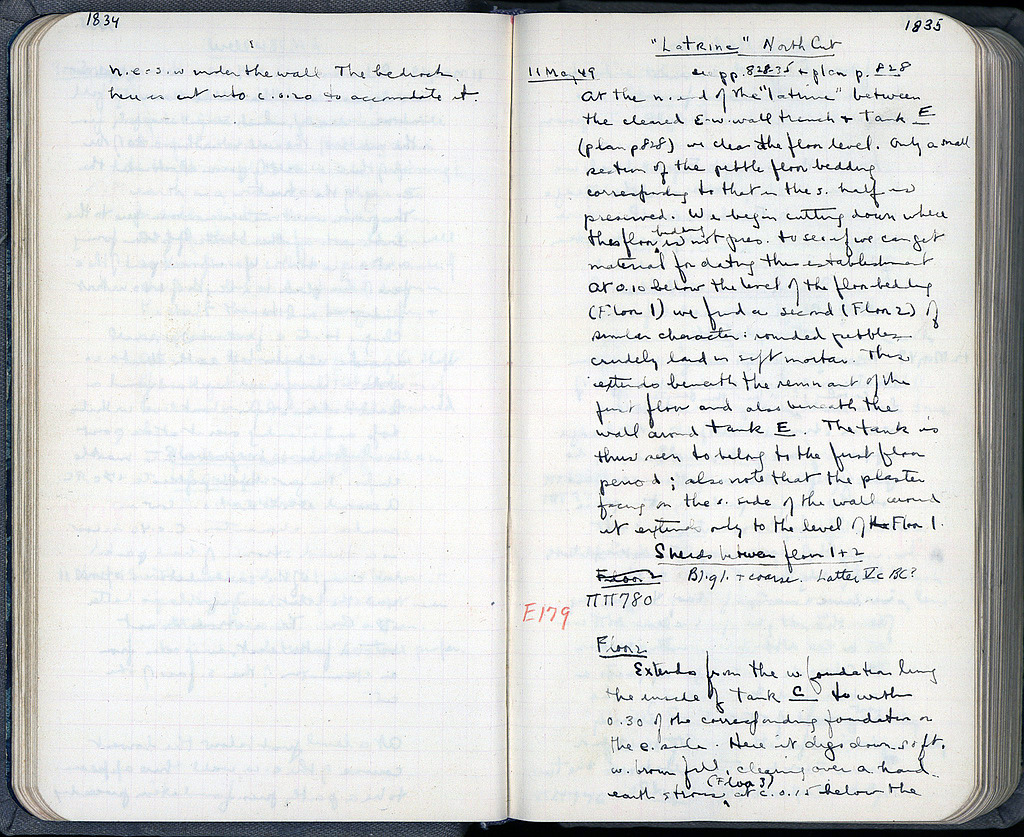 1834
n.e-s.w under the wall The bedrock
here is cut into c. 0.20 to accomdate it.
1835
"Latrine" North Cut
11 May 49
see pp. 828-35 + plan p. 828
At the n. end of the "latrine" between
the cleared E-w. wall trench + Tank E
(plan p 828) we clear the floor level. Only a small
section of the pebble floor bedding
corresponding to that in the s. half is
preserved. We begin cutting down where
this floor bedding is not pres. to see if we can get
material for dating this establishment
At 0.10 below the level of the floor bedding
(Floor 1) we find a second (Floor 2) of
similar character: rounded pebbles
crudely laid in soft mortar. This
extends beneath the remnant of the
first floor and also beneath the
wall around Tank E. The tank is
thus seen to belong to the first floor
period; also note that the plaster
facing on the s. side of the wall around
it extends only to the level of the Floor 1.
Sherds between floor 1+2
Floor 2 Bl. gl. + coarse. Latter V c BC?
ΠΠ780
E179
Floor 2
Extends from the w foundation lining
the inside of Tank C to within
0.30 of the corresponding foundation on
the e. side. Here it digs down soft,
w. brown fill, clearing over a hard
earth stroses (Floor 3) at c. 0.15 below the